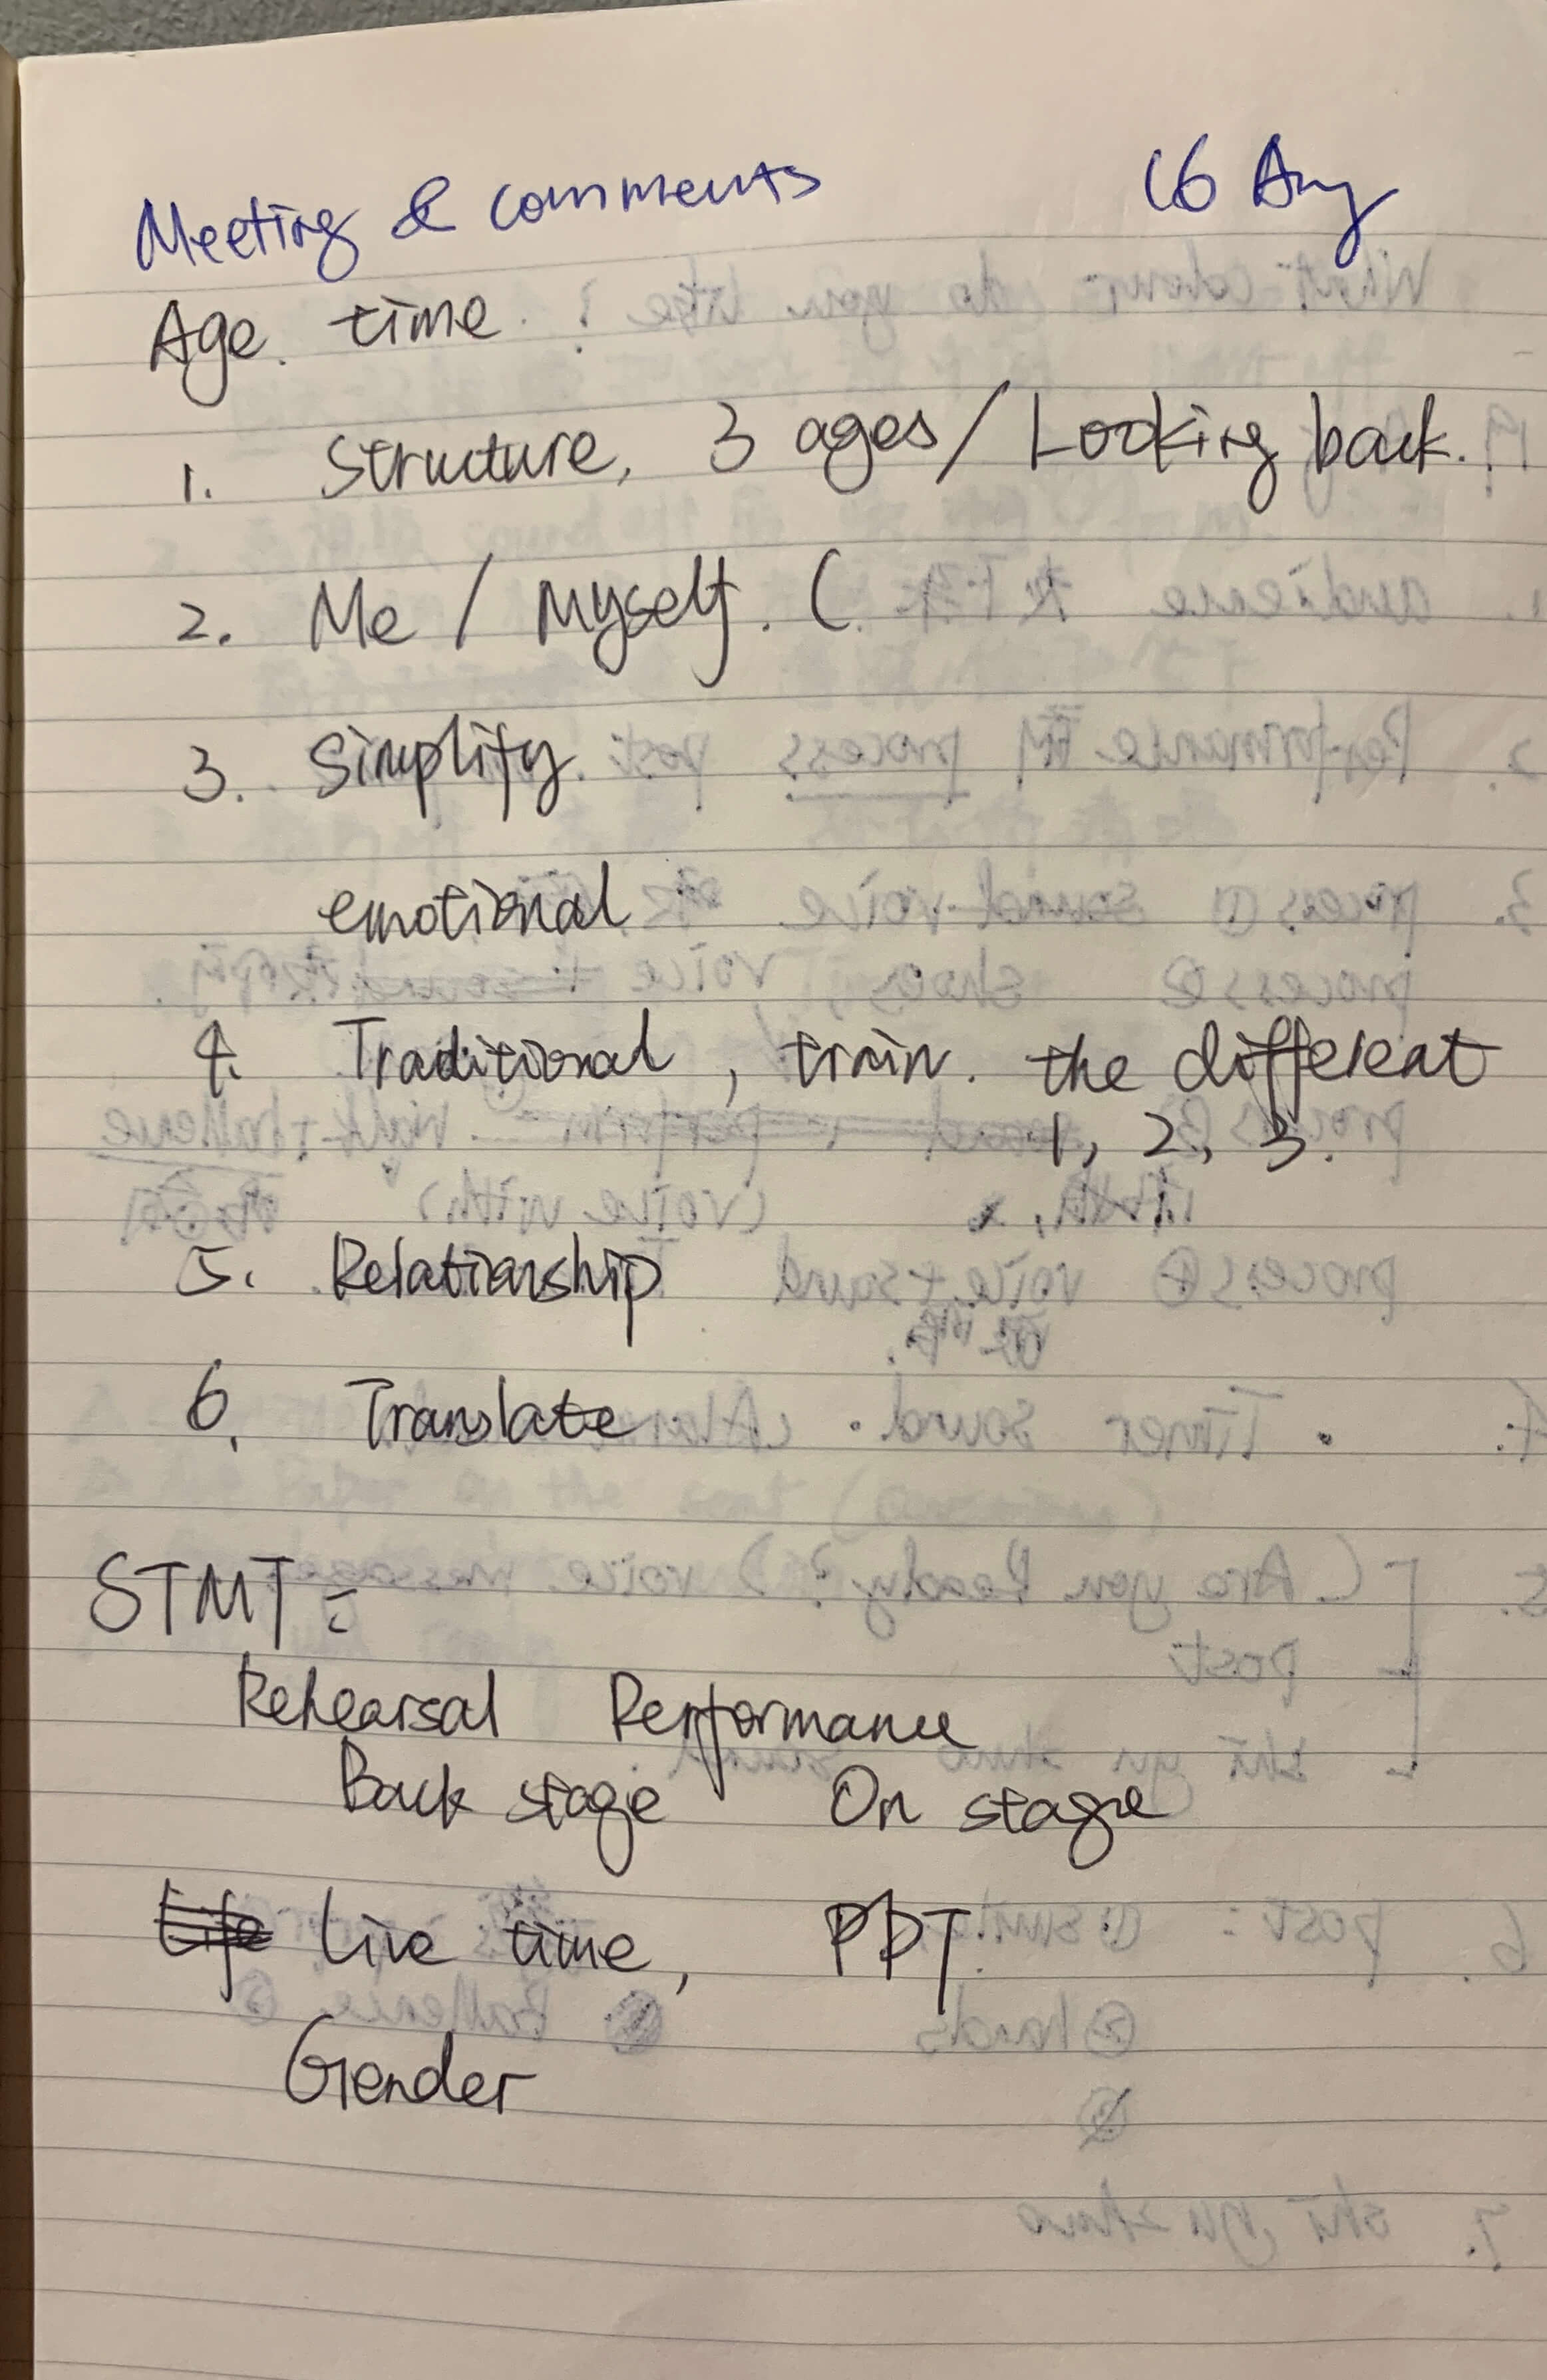 Meeting & comments 16 Aug
Age. time.
1. Structure, 3 ages / Looking back.
2. Me / Myself. (
3. Simplify.
emotional
4. Traditional, train. the different
1, 2, 3.
5. Relationship
6. Translate
STMT:
Rehearsal Performance
Back stage On stage
Life live time, PPT
Gender